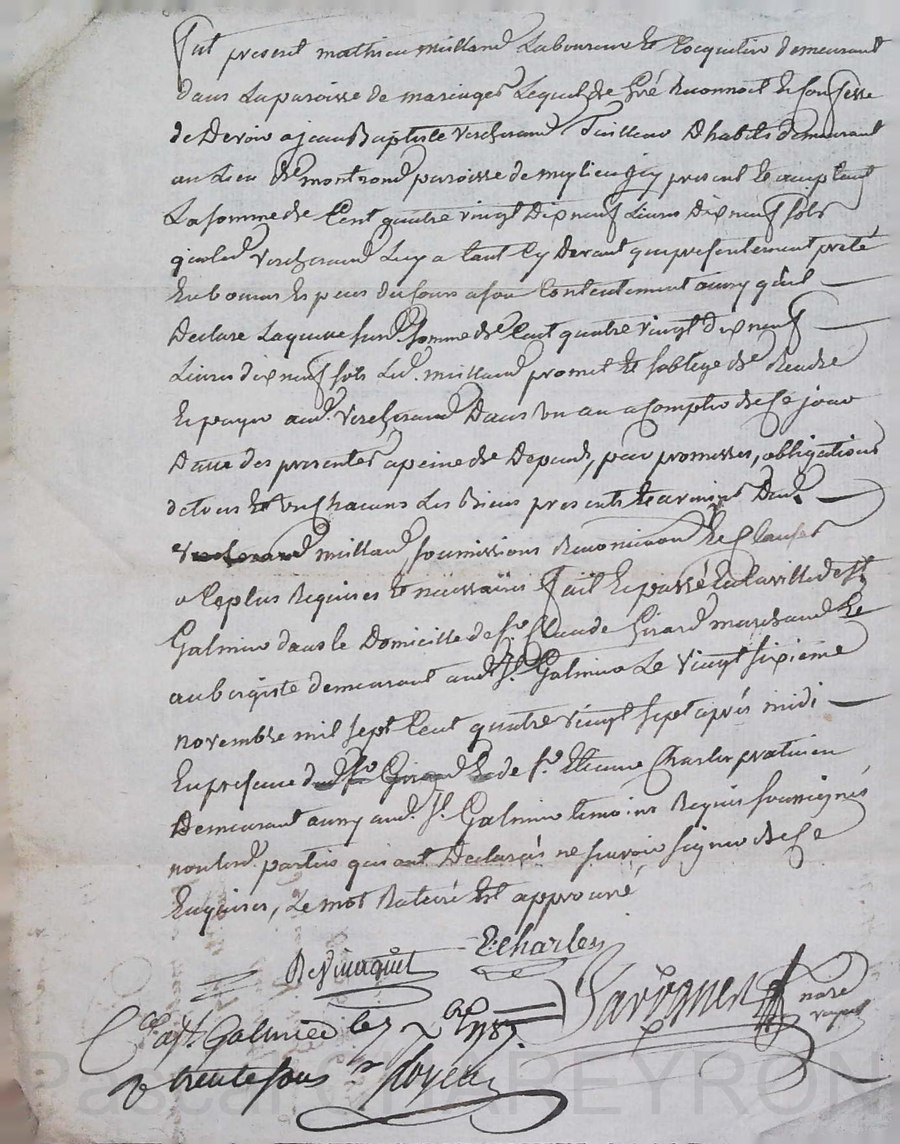 Fut present mathieu milland Laboureur et Cocquetier demeurant
dans La paroisse de maringes Lequel de Gré Reconnoit et Confesse
de Devoir a jean Baptiste Vercherand Tailleur D'habits demeurant
au Lieu De montrond paroisse de meylieu icy present Acceptant
La somme de Cent quatre vingt Dix neuf Livres Dix neuf sols
que led Vercherand Luy a tant Cy Devant que presentement preté
En bonnes Especes du Cours a son Contentement ainsy qu'il
Declare Laquelle susd. somme de Cent quatre vingt dix neuf
Livres dix neuf sols Led. milland promet Et soblege de Rendre
Et payer aud. Vercherand Dans un an a Compter de Ce jour
Datte des presentes a peine de Depends, par promesses, obligations
de tous Et un Chacuns Les Biens presents Et avenirs Dud.
milland soumissions Renonciaon Et Clauses
a Ce plus Requises Et necessaires fait Et passé En La ville de St
Galmier dans le Domicille de Sr. Claude Girard marchand Et
aubergiste demeurant aud. St. Galmier Le Vingt sixieme
novembre mil sept Cent quatre Vingt sept après midi
En presence dud. Sr. Girard Et de Sr. Etienne Charles praticien
Demeurant aussy aud. St. Galmier temoins Requis soussignés
non lesd. parties qui ont Declarées ne sçavoir signer de Ce
Enquises, Le mot Raturé Est approuvé
E: Charles
nore
royal
Clé a St. Galmier le 7 Xbre 1787.
R trente sous
Pascal CHAPEYRON